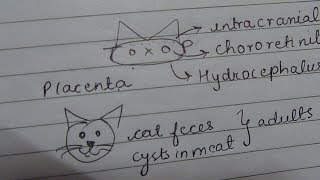 intracranial
o x o P chororetinit
Hydrocephalus
Placenta
cat feces } adults
cysts in meat